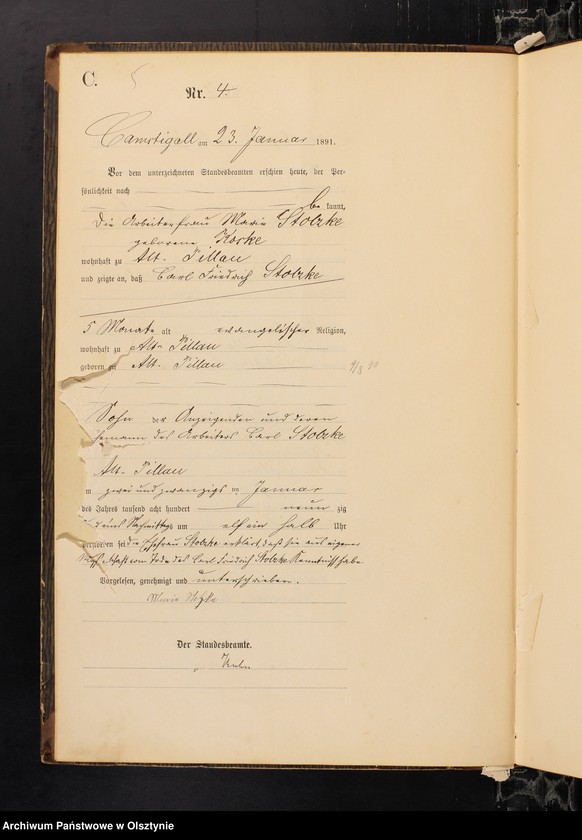 C.
Nr. 4.
Camstigall am 23. Januar 1891.
Vor dem unterzeichneten Standesbeamten erschien heute, der Per-
sönlichkeit nach
be kannt,
die Arbeiterfrau Marie Stolzke
geborene Korke
wohnhaft zu Alt-Pillau
und zeigte an, daß Carl Friedrich Stolzke
5 Monate alt evangelischer Religion,
wohnhaft zu Alt-Pillau
geboren zu Alt-Pillau
Sohn der Anzeigenden und deren
Ehemann des Arbeiters Carl Stolzke
Alt-Pillau
m zwei und zwanzigs ten Januar
des Jahres tausend acht hundert neun zig
und eins Nachmittags um elf ein halb Uhr
verstorben sei die Ehefrau Stolzke erklärt, daß sie aus eigener
Wissenschaft vom Tode des Carl Friedrich Stolzke Kenntniß habe
Vorgelesen, genehmigt und unterschrieben.
Marie
Der Standesbeamte.
Archiwum Państwowe w Olsztynie